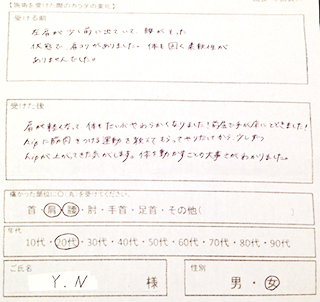 【施術を受けた際のカラダの変化】
受ける前
左肩が少し前に出ていて、腰がそった
状態で、肩コリがありました。体も固く柔軟性が
ありませんでした。
受けた後
肩が軽くなって体もだいぶやわらかくなりました!前屈で手が床にとどきました!
hipに筋肉をつける運動を教えてもらってやりだしてから、少しずつ
hipが上がってきた気がします。体を動かすことの大事さがわかりました。
痛かった部位に○（丸）を付けてください。
首・肩・腰・肘・手首・足首・その他（ ）
年代
10代・20代・30代・40代・50代・60代・70代・80代・90代
ご氏名
Y.N 様
性別
男・女